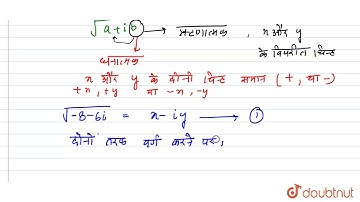 √a+ib → ऋणात्मक , x और y
के विपरीत चिन्ह
धनात्मक
x और y के दोनो चिन्ह समान (+, या -)
+x, +y या -x, -y
√-8-6i = x-iy → ①
दोनों तरफ वर्ग करने पर,
doubtnut